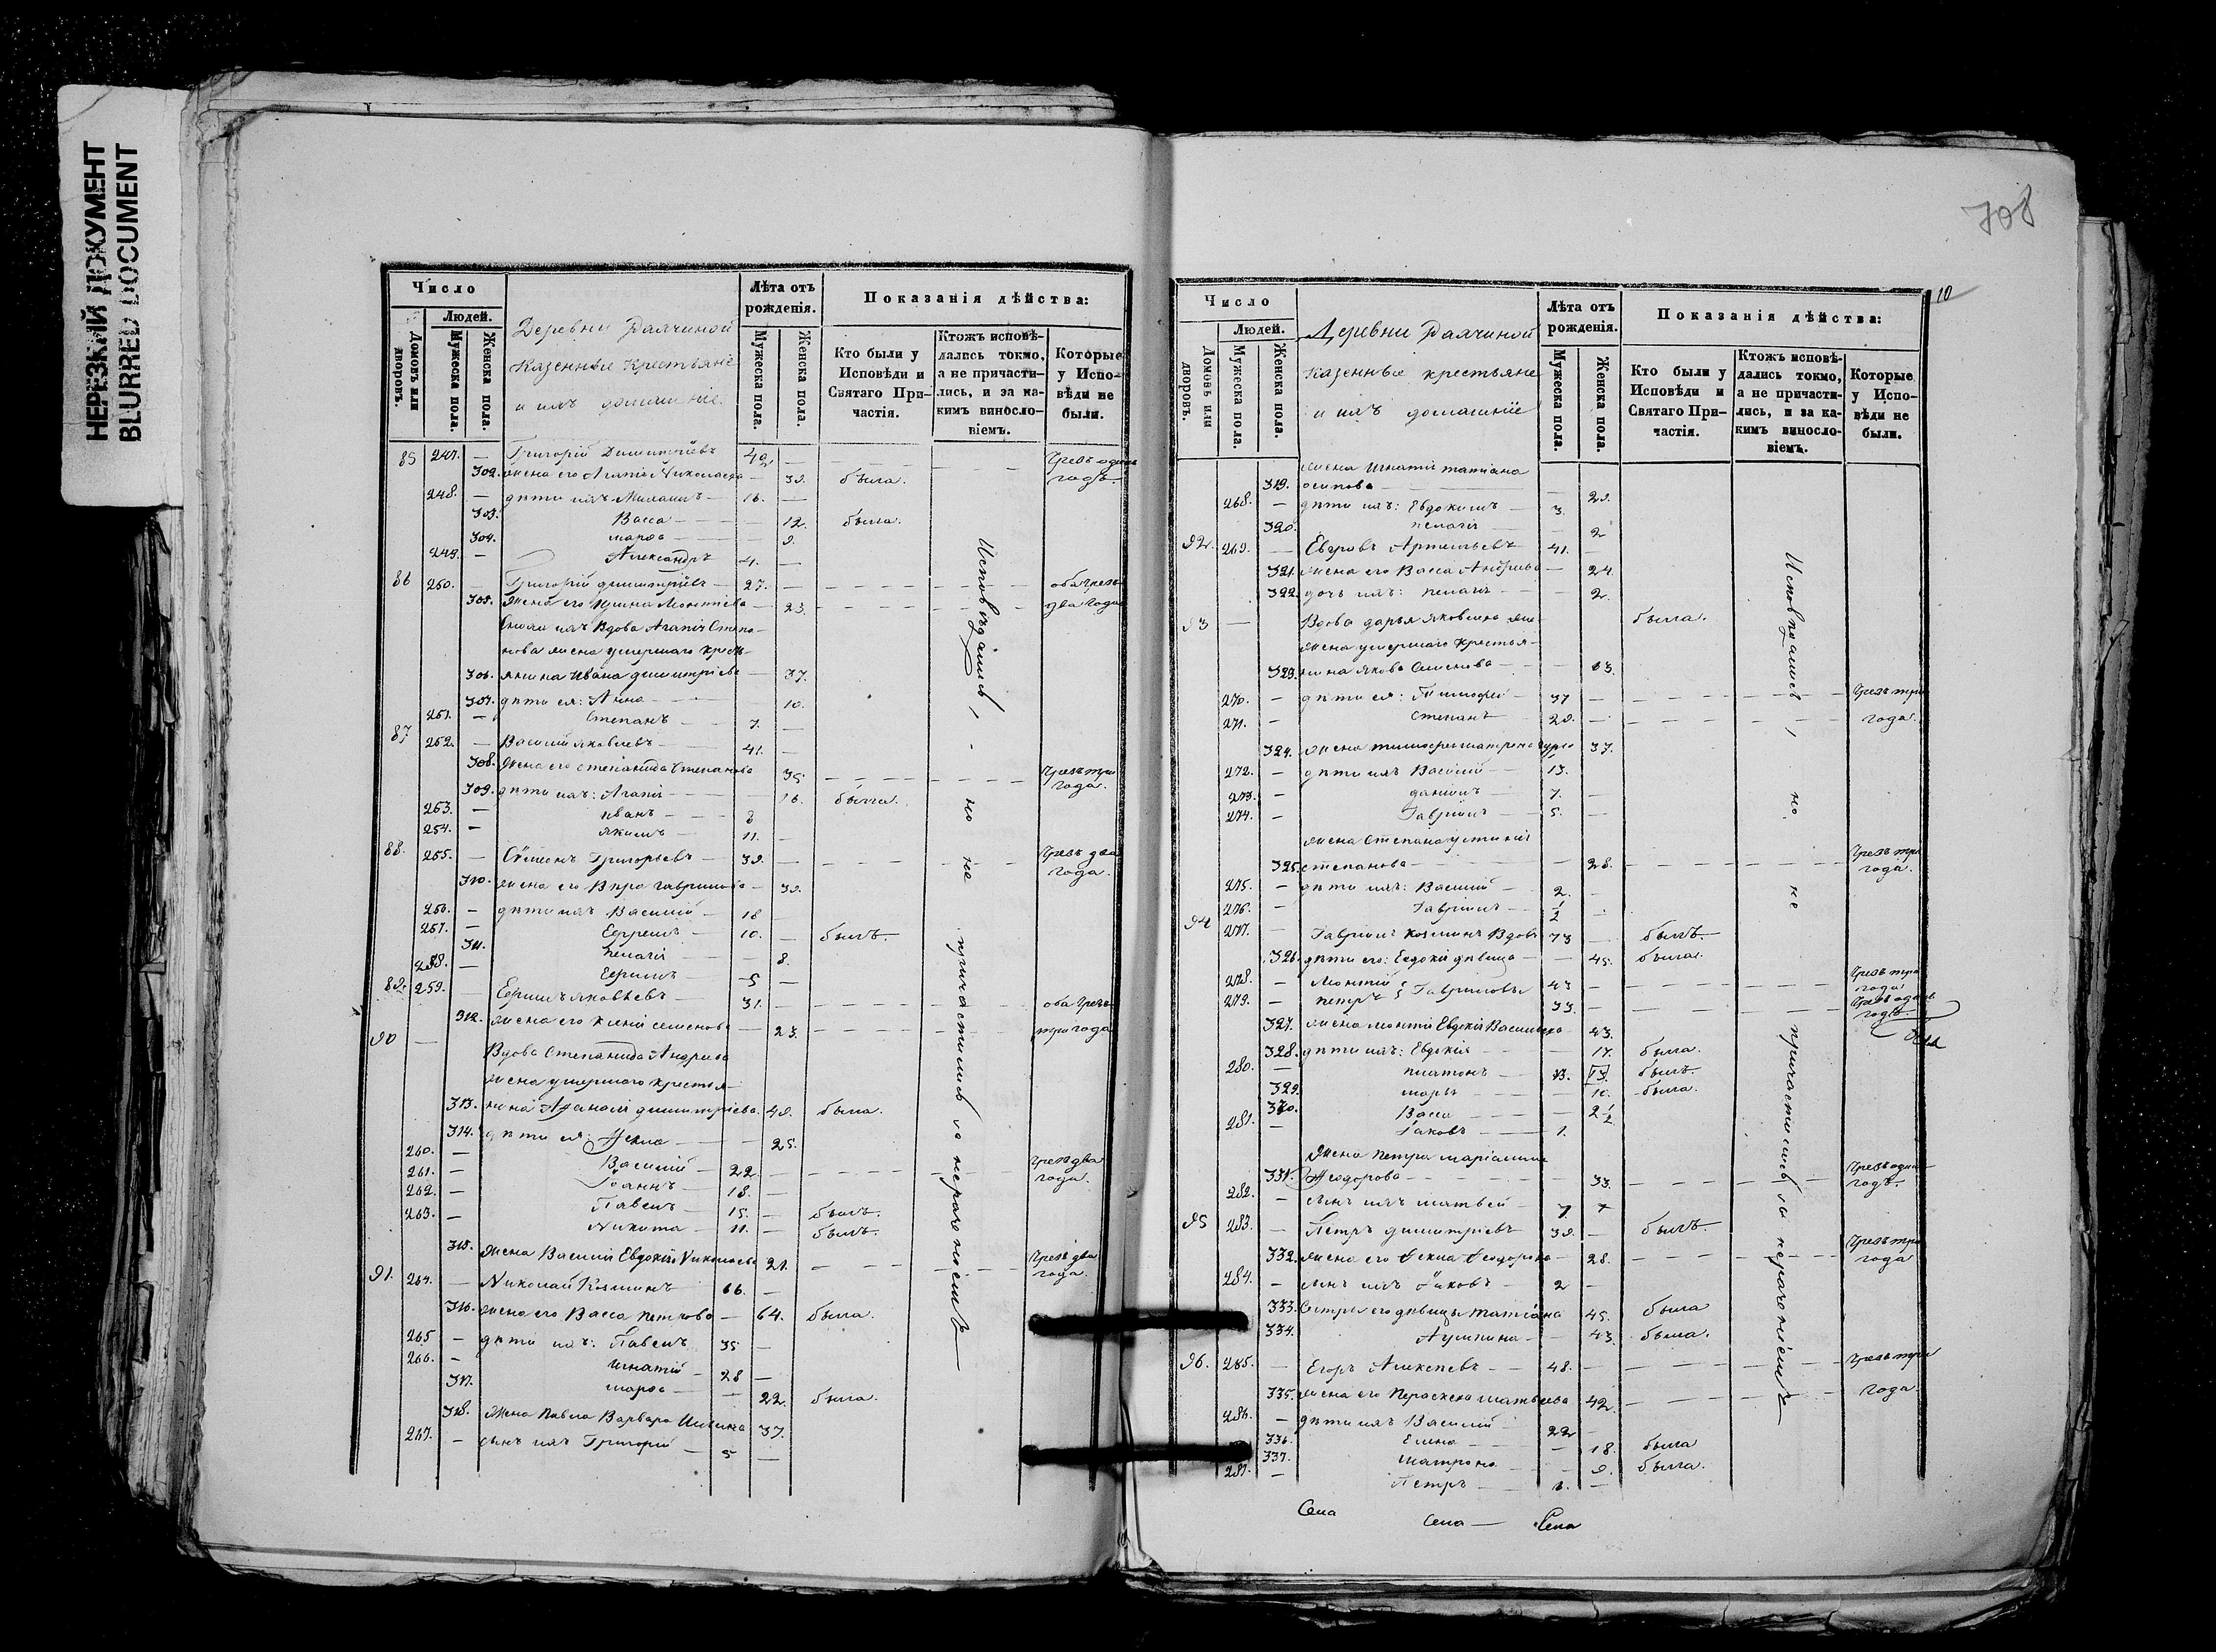 НЕРЕЗКИЙ ДОКУМЕНТ
BLURRED DOCUMENT
Число
Людей.
Домовъ или дворовъ.
Мужеска пола.
Женска пола.
Деревни
Казенные Крестьяне
и ихъ домашніе.
Лѣта отъ рожденія.
Мужеска пола.
Женска пола.
Показанія дѣйства:
Кто были у Исповѣди и Святаго Причастія.
Ктожъ исповѣдались токмо, а не причастились, и за какимъ винословіемъ.
Которые у Исповѣди не были.
Исповѣдались, но не причастились за нераченіемъ
85 247. — Григорій Димитріевъ 42 — Чрезъ одинъ
302. жена его Агапія Николаева — 39. была. годъ.
248. — дѣти ихъ: Михаилъ — 16. —
303. Васса — 12. была.
304. Марѳа — 9.
249. — Александръ 4. —
86 250. — Григорій Димитріевъ — 27. — оба чрезъ
305. жена его Ирина Леонтіева — 23. два года
Сноха ихъ Вдова Агапія Степа-
нова жена умершаго кресть-
306. янина Ивана Димитріева — 37.
307. дѣти ея: Анна — 10.
251. — Степанъ — 7. —
87 252. — Василій Яковлевъ — 41. —
308. Жена его Степанида Степанова 35. Чрезъ три
309. дѣти ихъ: Агапія — 16. была. года.
253. — Иванъ — 8
254. — Якимъ 11. —
88. 255. — Симеонъ Григорьевъ — 39. — Чрезъ два
310. жена его Вѣра Гаврилова — 39. года.
256. — дѣти ихъ Василій — 18 —
257. — Ефремъ — 10. — былъ.
311. Пелагія — 8.
258. — Ефимъ 5 —
89. 259. — Ефимъ Яковлевъ — 31. — оба чрезъ
312. жена его Ксенія Семенова — 23. три года
90 — Вдова Степанида Андреева
жена умершаго крестья-
313. нина Афанасія Димитріева 49. была.
314. дѣти ея: Ѳекла — 25.
260. — Василій — 22 Чрезъ два
261. — Іоаннъ — 18. — года.
262. — Павелъ — 15. — былъ.
263. — Никита — 11. — былъ.
315. Жена Василія Евдокія Николаева 21. Чрезъ два
91. 264. — Николай Козминъ 66. — года.
316. жена его Васса Петрова — 64. была.
265 — дѣти ихъ: Павелъ 35 —
266. — Игнатій — 28 —
317. Марѳа — 22. была.
318. Жена Павла Варвара 37.
267. — сынъ ихъ Григорій — 5 —
708
10
Число
Людей.
Домовъ или дворовъ.
Мужеска пола.
Женска пола.
Деревни
Казенные крестьяне
и ихъ домашніе
Лѣта отъ рожденія.
Мужеска пола.
Женска пола.
Показанія дѣйства:
Кто были у Исповѣди и Святаго Причастія.
Ктожъ исповѣдались токмо, а не причастились, и за какимъ винословіемъ.
Которые у Исповѣди не были.
Исповѣдались, но не причастились за нераченіемъ
жена Игнатія Татіана
319. Осипова — 29.
268. — дѣти ихъ: Евдокимъ — 3.
320. Пелагія — 2
92. 269. — Артемьевъ 41. —
321. жена его Васса Андреева — 24.
322. дочь ихъ: Пелагія — 2.
93 — Вдова Дарья Яковлева была.
жена умершаго Крестья-
323. нина Якова Семенова — 63.
270. — дѣти ея: Тимофей — 37 — Чрезъ три
271. — Степанъ — 29. — года.
324. Жена Тимофея Матрона 37.
272. — дѣти ихъ Василій — 13.
273. — Даніилъ — 7. —
274. — Гавріилъ — 5. —
жена Степана Устинія
325. Степанова — 28. Чрезъ три
275. — дѣти ихъ: Василій — 2. года.
276. — Гавріилъ — 1/2 —
94 277. — Гавріилъ Козминъ Вдовъ 73 — былъ.
326. дѣти его: Евдокія дѣвица — 45. была.
278. — Леонтій 43 — Чрезъ три года
279. — Петръ } Гавриловы 33. — Чрезъ одинъ годъ.
327. жена Леонтія Евдокія Васильева 43.
328. дѣти ихъ: Евдокія — 17. была.
280. — Платонъ — 13. 13. былъ.
329. Марья — 10. была.
330. Васса — 2 1/2
281. — Іаковъ — 1.
Жена Петра Маріамна
331. Ѳеодорова — 33. Чрезъ одинъ
282. — сынъ ихъ Матвей — 7 годъ.
95 283. — Петръ Димитріевъ 39. — былъ.
332. жена его Ѳекла Ѳеодорова — 28. Чрезъ три года
284. — сынъ ихъ Іаковъ — 2 —
333. Сестры его дѣвицы Татіана 45. была
334. Акулина — 43. была.
96. 285. — Егоръ Алексеевъ — 48. — Чрезъ три
335. жена его Параскева Матвеева 42 года.
286. — дѣти ихъ Василій — 22 —
336. Елена — 18. была
337. Матрона — 9. была.
287. — Петръ —
Села Села — Села